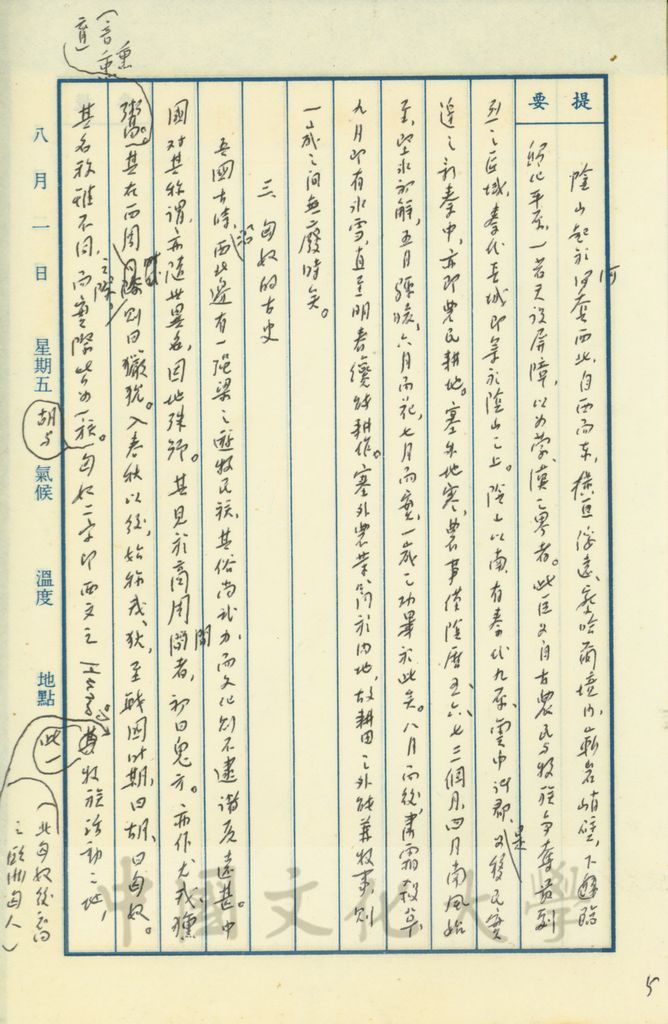 提要
陰山起於河套西北,自西而東,橫亙綏遠、察哈爾境內,嶄岩峭壁,下臨
歸化平原,一若天設屏障,以為蒙漢之界者。此區又自古農民與牧族爭奪最劇
烈之區域,秦代長城即築於陰山之上。陰山以南,有秦代九原、雲中諸郡,是移民實
邊之新秦中,亦即農民耕地。塞外地寒,農事僅陰曆五、六、七三個月,四月南風始
至,堅冰初解,五月猶暖,六月而花,七月而實,一歲之功畢於此矣。八月而後,肅霜殺草,
九月即有冰雪,直至明春纔能耕作。塞外農業間於內地,故耕田之外能兼牧事,則
一歲之間無廢時矣。
三、匈奴的古史
吾國古時,沿西北邊有一強梁之遊牧民族,其俗尚武力,而文化則不逮諸夏遠甚。中
國對其稱謂,亦隨世異名,因地殊號。其見於商周間者,初曰鬼方。亦作犬戎、獯
鬻。其在西周之際則曰獫狁。入春秋以後,始稱戎、狄,至戰國時期,曰胡、曰匈奴。
其名稱雖不同,而實際皆為一族。胡與匈奴二字即西文之
此一牧族活動之地,
(北匈奴後裔
之歐洲匈人)
八月一日 星期五 氣候 溫度 地點
中國文化大學
5